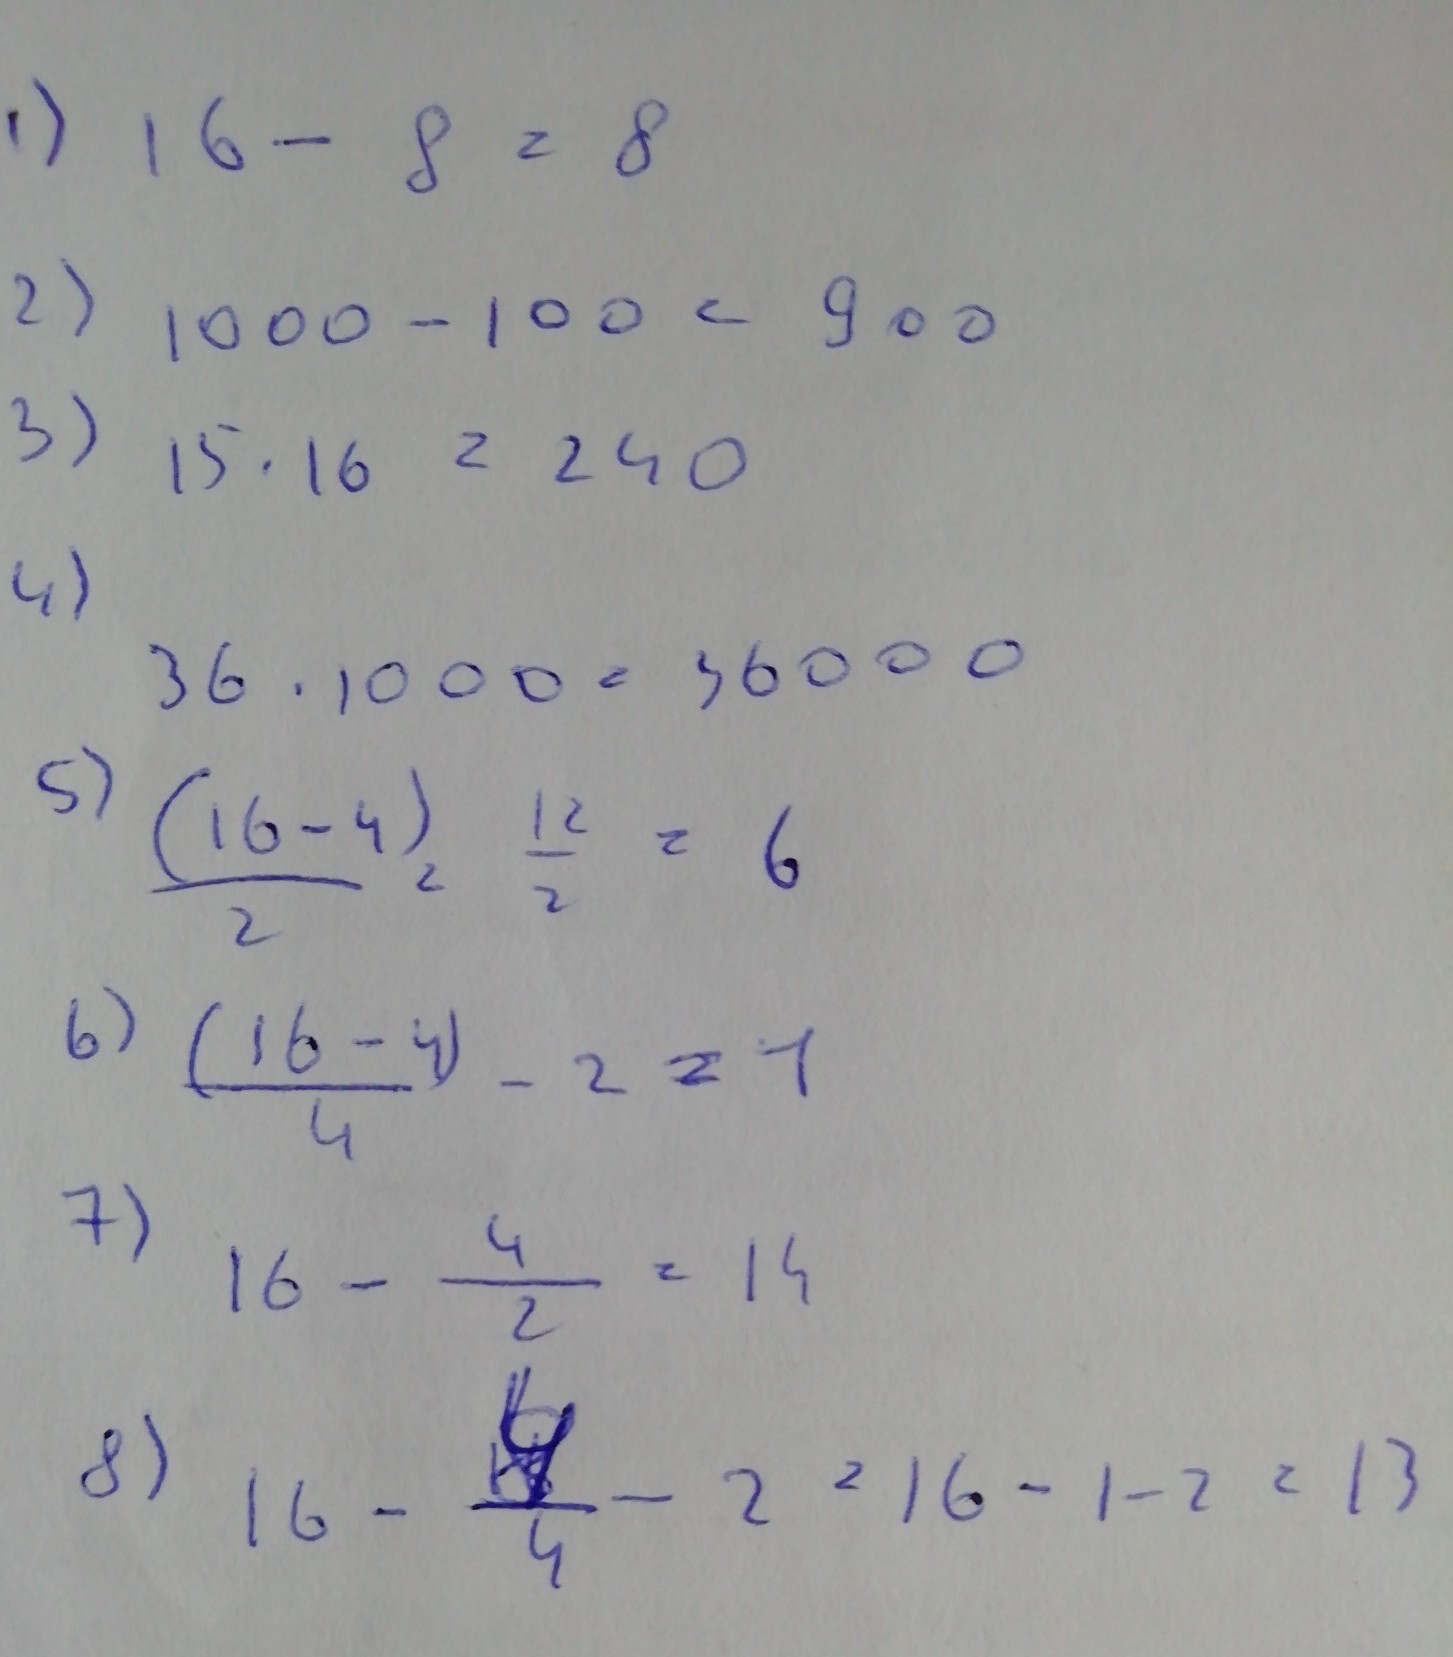 1) 16 - 8 = 8
2) 1000 - 100 = 900
3) 15 · 16 = 240
4)
36 · 1000 = 36000
5) (16-4)/2 = 12/2 = 6
6) (16-4)/4 - 2 = 1
7) 16 - 4/2 = 14
8) 16 - 4/4 - 2 = 16 - 1 - 2 = 13